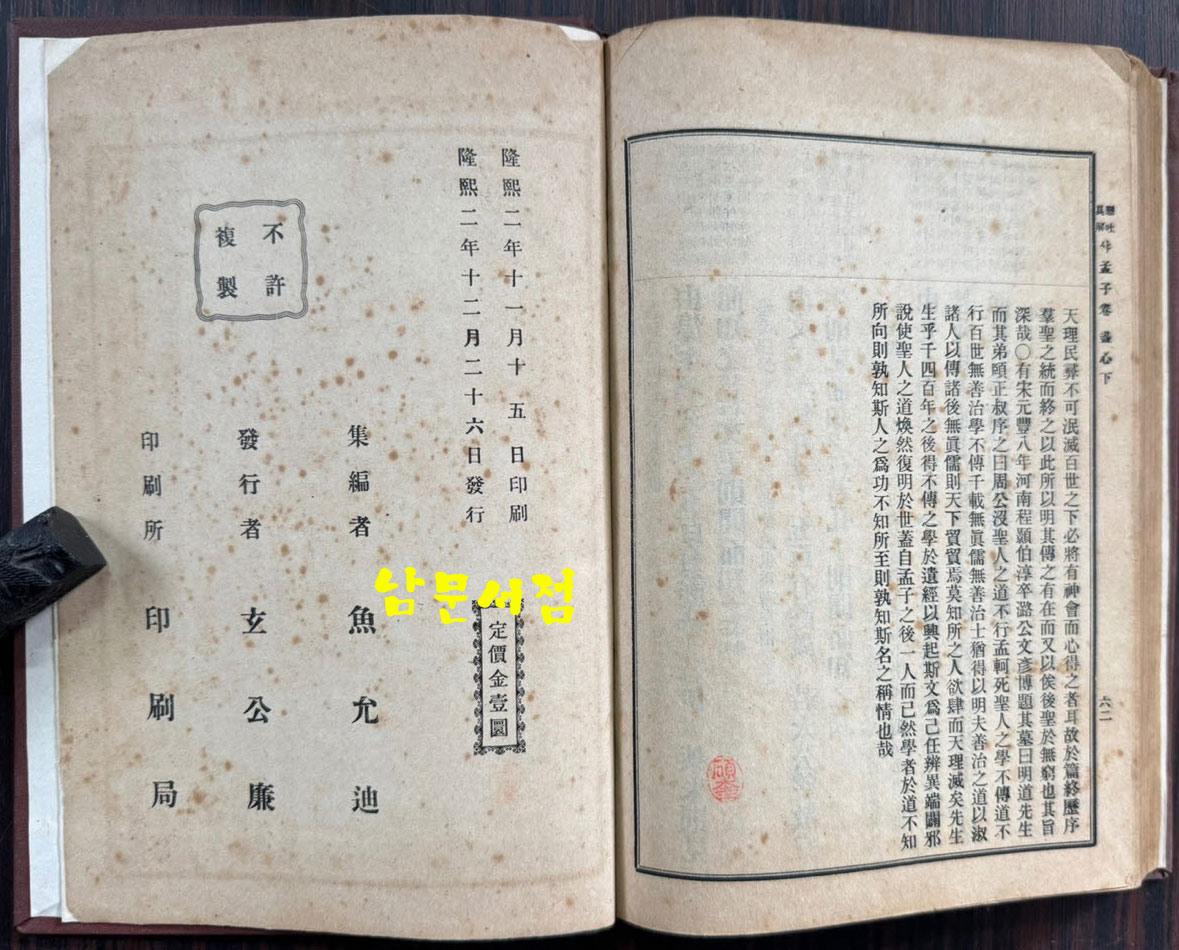 懸吐
具解
孟子卷
盡心下
六二
天理民彛不可泯滅百世之下必將有神會而心得之者耳故於篇終歷序
羣聖之統而終之以此所以明其傳之有在而又以俟後聖於無窮也其旨
深哉○有宋元豐八年河南程顥伯淳卒潞公文彥博題其墓曰明道先生
而其弟頤正叔序之曰周公沒聖人之道不行孟軻死聖人之學不傳道不
行百世無善治學不傳千載無眞儒無善治士猶得以明夫善治之道以淑
諸人以傳諸後無眞儒則天下貿貿焉莫知所之人欲肆而天理滅矣先生
生乎千四百年之後得不傳之學於遺經以興起斯文爲己任辨異端闢邪
說使聖人之道煥然復明於世蓋自孟子之後一人而已然學者於道不知
所向則孰知斯人之爲功不知所至則孰知斯名之稱情也哉
隆熙二年十一月十五日印刷
隆熙二年十二月二十六日發行
定價金壹圜
不許
複製
集編者 魚允迪
發行者 玄公廉
印刷所 印刷局
남문서점